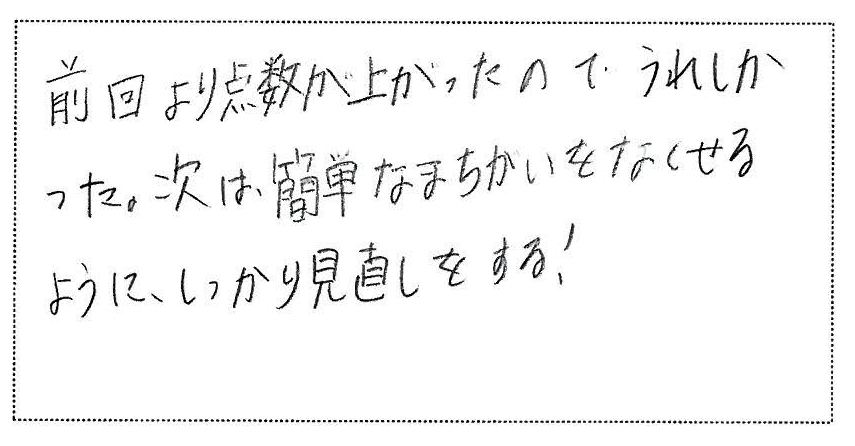 前回より点数が上がったので うれしか
った。次は、簡単なまちがいをなくせる
ように、しっかり見直しをする!